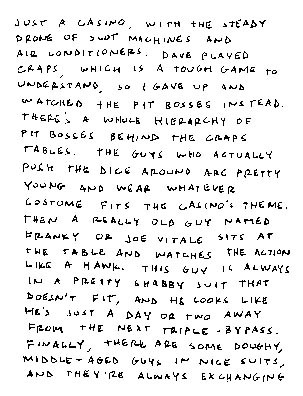 JUST A CASINO, WITH THE STEADY
DRONE OF SLOT MACHINES AND
AIR CONDITIONERS. DAVE PLAYED
CRAPS, WHICH IS A TOUGH GAME TO
UNDERSTAND, SO I GAVE UP AND
WATCHED THE PIT BOSSES INSTEAD.
THERE'S A WHOLE HIERARCHY OF
PIT BOSSES BEHIND THE CRAPS
TABLES. THE GUYS WHO ACTUALLY
PUSH THE DICE AROUND ARE PRETTY
YOUNG AND WEAR WHATEVER
COSTUME FITS THE CASINO'S THEME.
THEN A REALLY OLD GUY NAMED
FRANKY OR JOE VITALE SITS AT
THE TABLE AND WATCHES THE ACTION
LIKE A HAWK. THIS GUY IS ALWAYS
IN A PRETTY SHABBY SUIT THAT
DOESN'T FIT, AND HE LOOKS LIKE
HE'S JUST A DAY OR TWO AWAY
FROM THE NEXT TRIPLE-BYPASS.
FINALLY, THERE ARE SOME DOUGHY,
MIDDLE-AGED GUYS IN NICE SUITS,
AND THEY'RE ALWAYS EXCHANGING